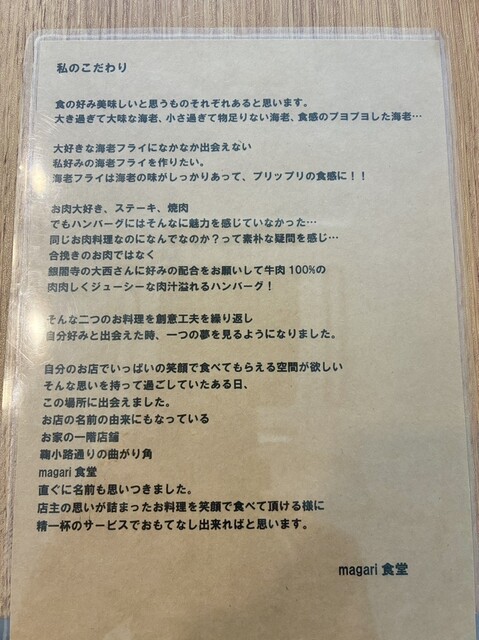 私のこだわり
食の好み美味しいと思うものそれぞれあると思います。
大き過ぎて大味な海老、小さ過ぎて物足りない海老、食感のブヨブヨした海老…
大好きな海老フライになかなか出会えない
私好みの海老フライを作りたい。
海老フライは海老の味がしっかりあって、プリップリの食感に！！
お肉大好き、ステーキ、焼肉
でもハンバーグにはそんなに魅力を感じていなかった…
同じお肉料理なのになんでなのか？って素朴な疑問を感じ…
合挽きのお肉ではなく
銀閣寺の大西さんに好みの配合をお願いして牛肉100%の
肉肉しくジューシーな肉汁溢れるハンバーグ！
そんな二つのお料理を創意工夫を繰り返し
自分好みと出会えた時、一つの夢を見るようになりました。
自分のお店でいっぱいの笑顔で食べてもらえる空間が欲しい
そんな思いを持って過ごしていたある日、
この場所に出会えました。
お店の名前の由来にもなっている
お家の一階店舗
麹小路通りの曲がり角
magari 食堂
直ぐに名前も思いつきました。
店主の思いが詰まったお料理を笑顔で食べて頂ける様に
精一杯のサービスでおもてなし出来ればと思います。
magari 食堂